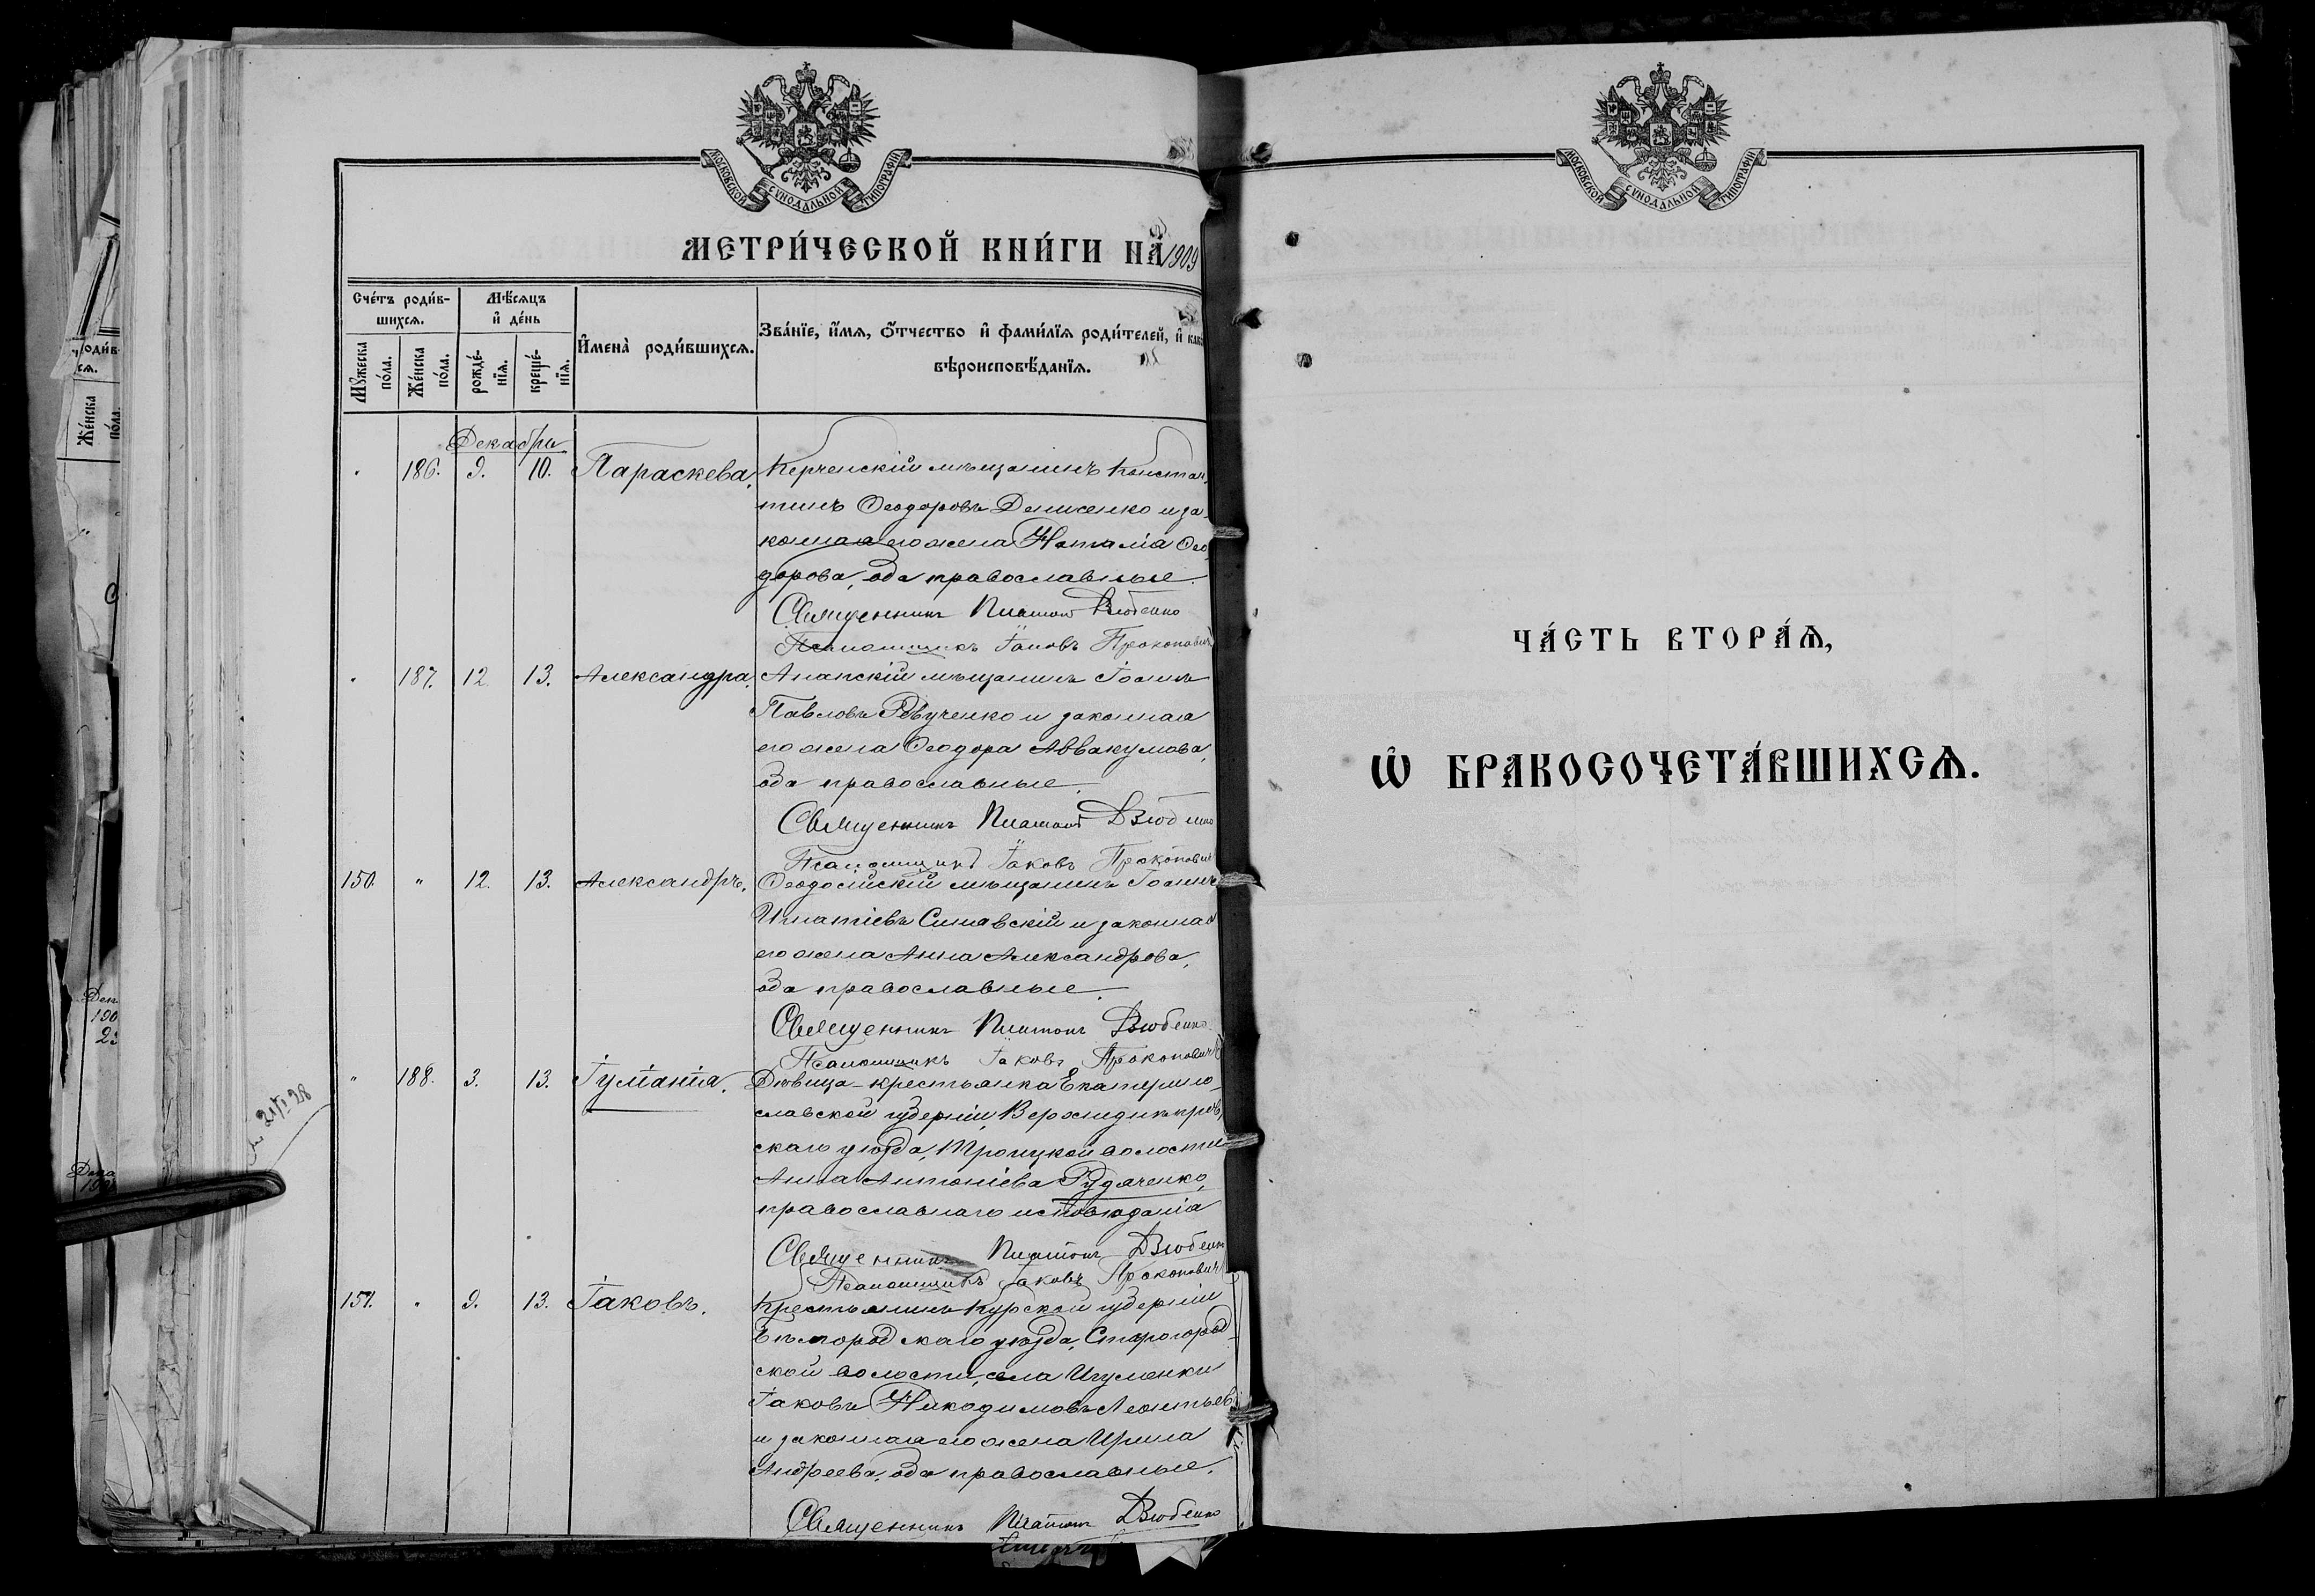 МОСКОВСКОЙ СѴНОДАЛЬНОЙ ТИПОГРАФІИ
МЕТРИ́ЧЕСКОЙ КНИ́ГИ НА̀ 1909
Сче́тъ роди́в-
шихсѧ.
Мѣ́сѧцъ
и҆ де́нь
И҆мена̀ роди́вшихсѧ.
Зва́нїе, и҆́мѧ, ѻ҆́тчество и҆ фами́лїѧ роди́телей, и҆
вѣроисповѣ́данїѧ.
Мꙋ́жеска
по́ла.
Же́нска
по́ла.
рожде́-
нїѧ.
креще́-
нїѧ.
Декабрь
186. 9. 10. Параскева. Керченскій мѣщанинъ Констан-
тинъ Ѳеодоровъ Денисенко и за-
конная его жена Наталія Ѳео-
дорова, оба православные.
Священникъ Платонъ Дзюбенко
Псаломщикъ Іаковъ Прокоповичъ
187. 12. 13. Александра. Анапскій мѣщанинъ Іоаннъ
Павловъ Ревученко и законная
его жена Ѳеодора Аввакумова,
оба православные.
Священникъ Платонъ Дзюбенко
Псаломщикъ Іаковъ Прокоповичъ
150. " 12. 13. Александръ. Ѳеодосійскій мѣщанинъ Іоаннъ
Игнатіевъ Синавскій и законная
его жена Анна Александрова,
оба православные.
Священникъ Платонъ Дзюбенко
Псаломщикъ Іаковъ Прокоповичъ
" 188. 3. 13. Іуліанія. Дѣвица-крестьянка Екатерино-
славской губерніи, Верхнеднѣпров-
скаго уѣзда, Троицкой волости
Анна Антоніева Рудяченко,
православнаго исповѣданія
Священникъ Платонъ Дзюбенко
Псаломщикъ Іаковъ Прокоповичъ
151. " 9. 13. Іаковъ. Крестьянинъ Курской губерніи
Бѣлгородскаго уѣзда, Старогород-
ской волости, села Игуменки
Іаковъ Никодимовъ Леонтьевъ
и законная его жена Ирина
Андреева, оба православные.
Священникъ Платонъ Дзюбенко
МОСКОВСКОЙ СѴНОДАЛЬНОЙ ТИПОГРАФІИ
ЧА́СТЬ ВТОРА́Ѧ,
Ѡ҆ БРАКОСОЧЕТА́ВШИХСѦ.